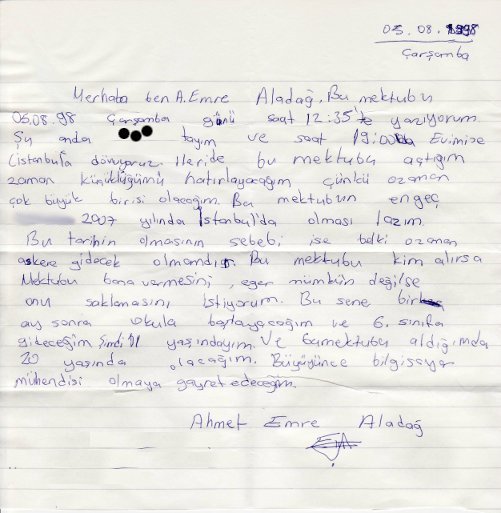 05.08.1998
Çarşamba
Merhaba ben A.Emre Aladağ. Bu mektubu
05.08.98 Çarşamba günü saat 12:35'te yazıyorum.
Şu anda tayım ve saat 19:00da Evimize
(istanbul'a dönüyoruz. İleride bu mektubu açtığım
zaman küçüklüğümü hatırlayacağım çünkü ozaman
çok büyük birisi olacağım. Bu mektubun engeç
2007 yılında İstanbul'da olması lazım.
Bu tarihin olmasının sebebi ise belki ozaman
askere gidecek olmamdır. Bu mektubu kim alırsa
Mektubu bana vermesini, eğer mümkün değilse
onu saklamasını istiyorum. Bu sene bir
ay sonra okula başlayacağım ve 6. sınıfa
gideceğim. Şimdi 11 yaşındayım. Ve bu mektubu aldığımda
20 yaşında olacağım. Büyüyünce bilgisayar
mühendisi olmaya gayret edeceğim.
Ahmet Emre Aladağ